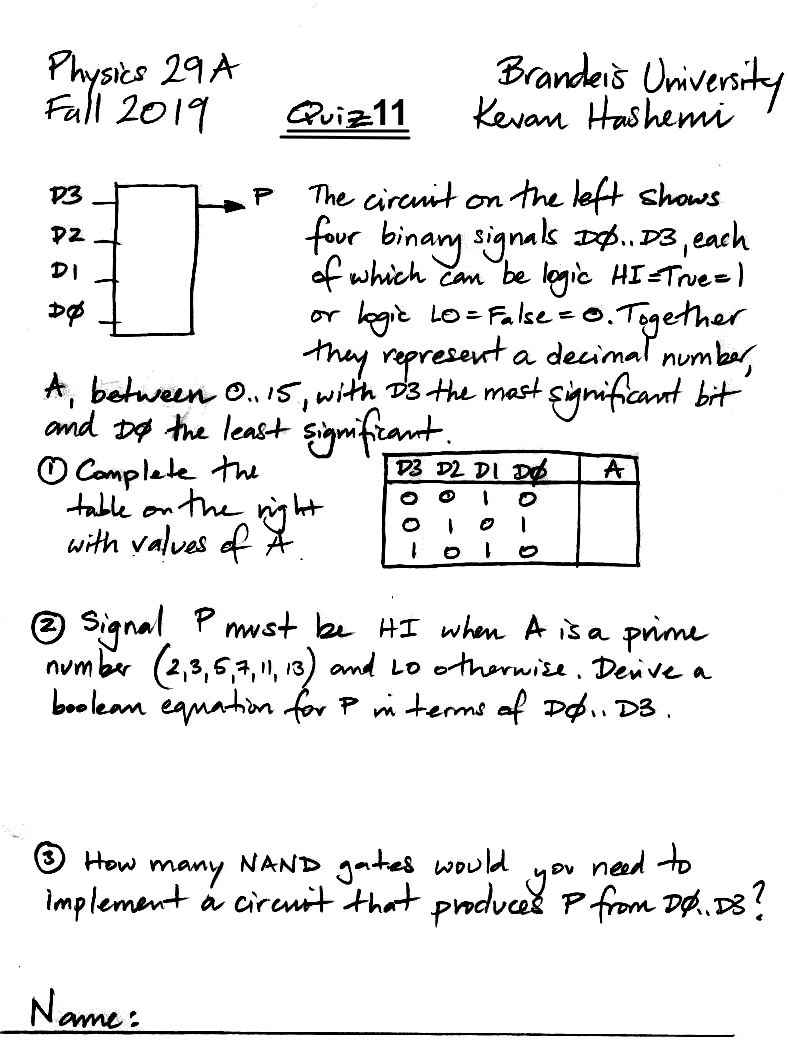 Physics 29A
Fall 2019
Quiz 11
Brandeis University
Kevan Hashemi
D3
D2
D1
DØ
P
The circuit on the left shows
four binary signals DØ..D3, each
of which can be logic HI=True=1
or logic LO=False=0. Together
they represent a decimal number,
A, between 0..15, with D3 the most significant bit
and DØ the least significant.
① Complete the
table on the right
with values of A
D3 D2 D1 DØ A
0 0 1 0
0 1 0 1
1 0 1 0
② Signal P must be HI when A is a prime
number (2,3,5,7,11,13) and LO otherwise. Derive a
boolean equation for P in terms of DØ..D3.
③ How many NAND gates would you need to
implement a circuit that produces P from DØ..D3?
Name: